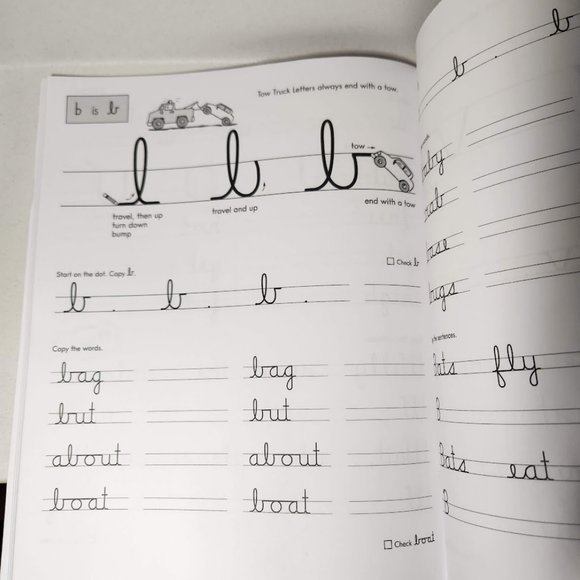 b is b
Tow Truck Letters always end with a tow.
tow
travel, then up
turn down
bump
travel and up
end with a tow
Check b
Start on the dot. Copy b.
b b b
Copy the words.
bag bag
but but
about about
boat boat
Check boat
b b
fly
eat
B
B